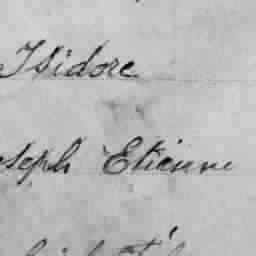 Isidore
oseph Etienne